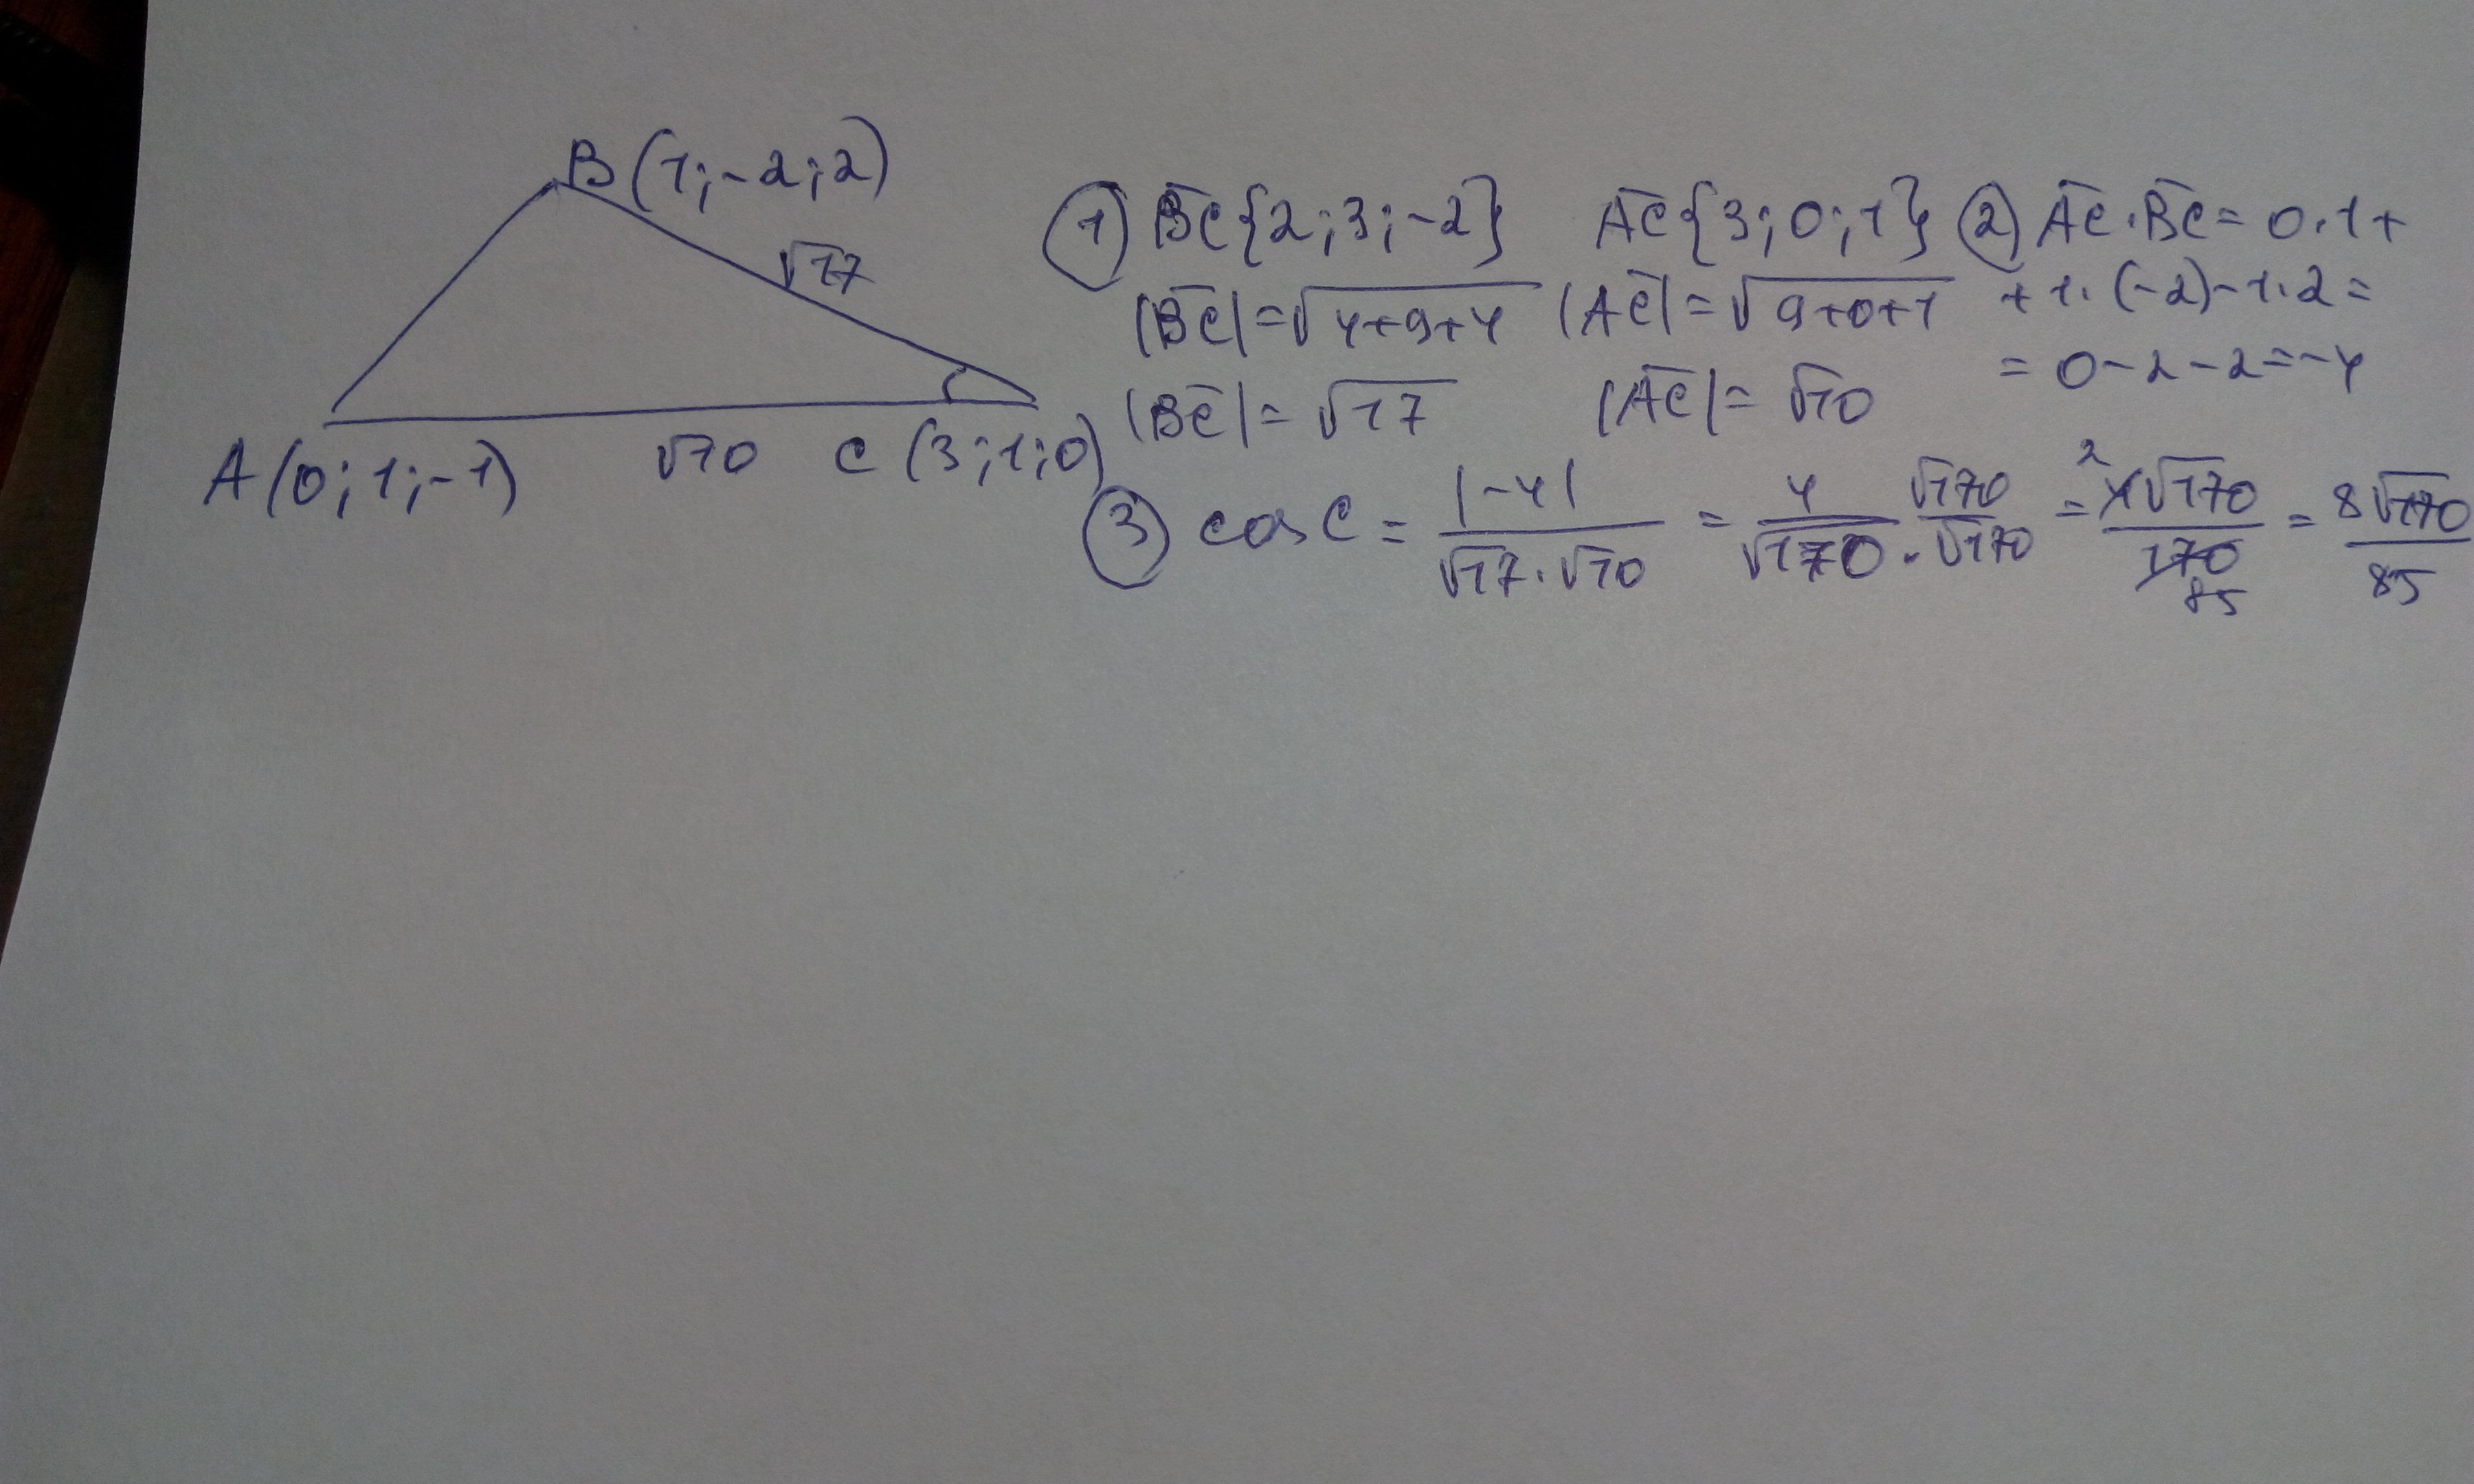 B(1;-2;2)
√17
A(0;1;-1) √10 C(3;1;0)
① B̅C̅{2;3;-2} A̅C̅{3;0;1}
|B̅C̅|=√4+9+4 |A̅C̅|=√9+0+1
|B̅C̅|=√17 |A̅C̅|=√10
② A̅C̅·B̅C̅=0·1+
+1·(-2)-1·2=
=0-2-2=-4
③ cos C = |-4| / √17·√10 = 4 / √170 · √170 / √170 = 2 4√170 / 170 85 = 8√170 / 85